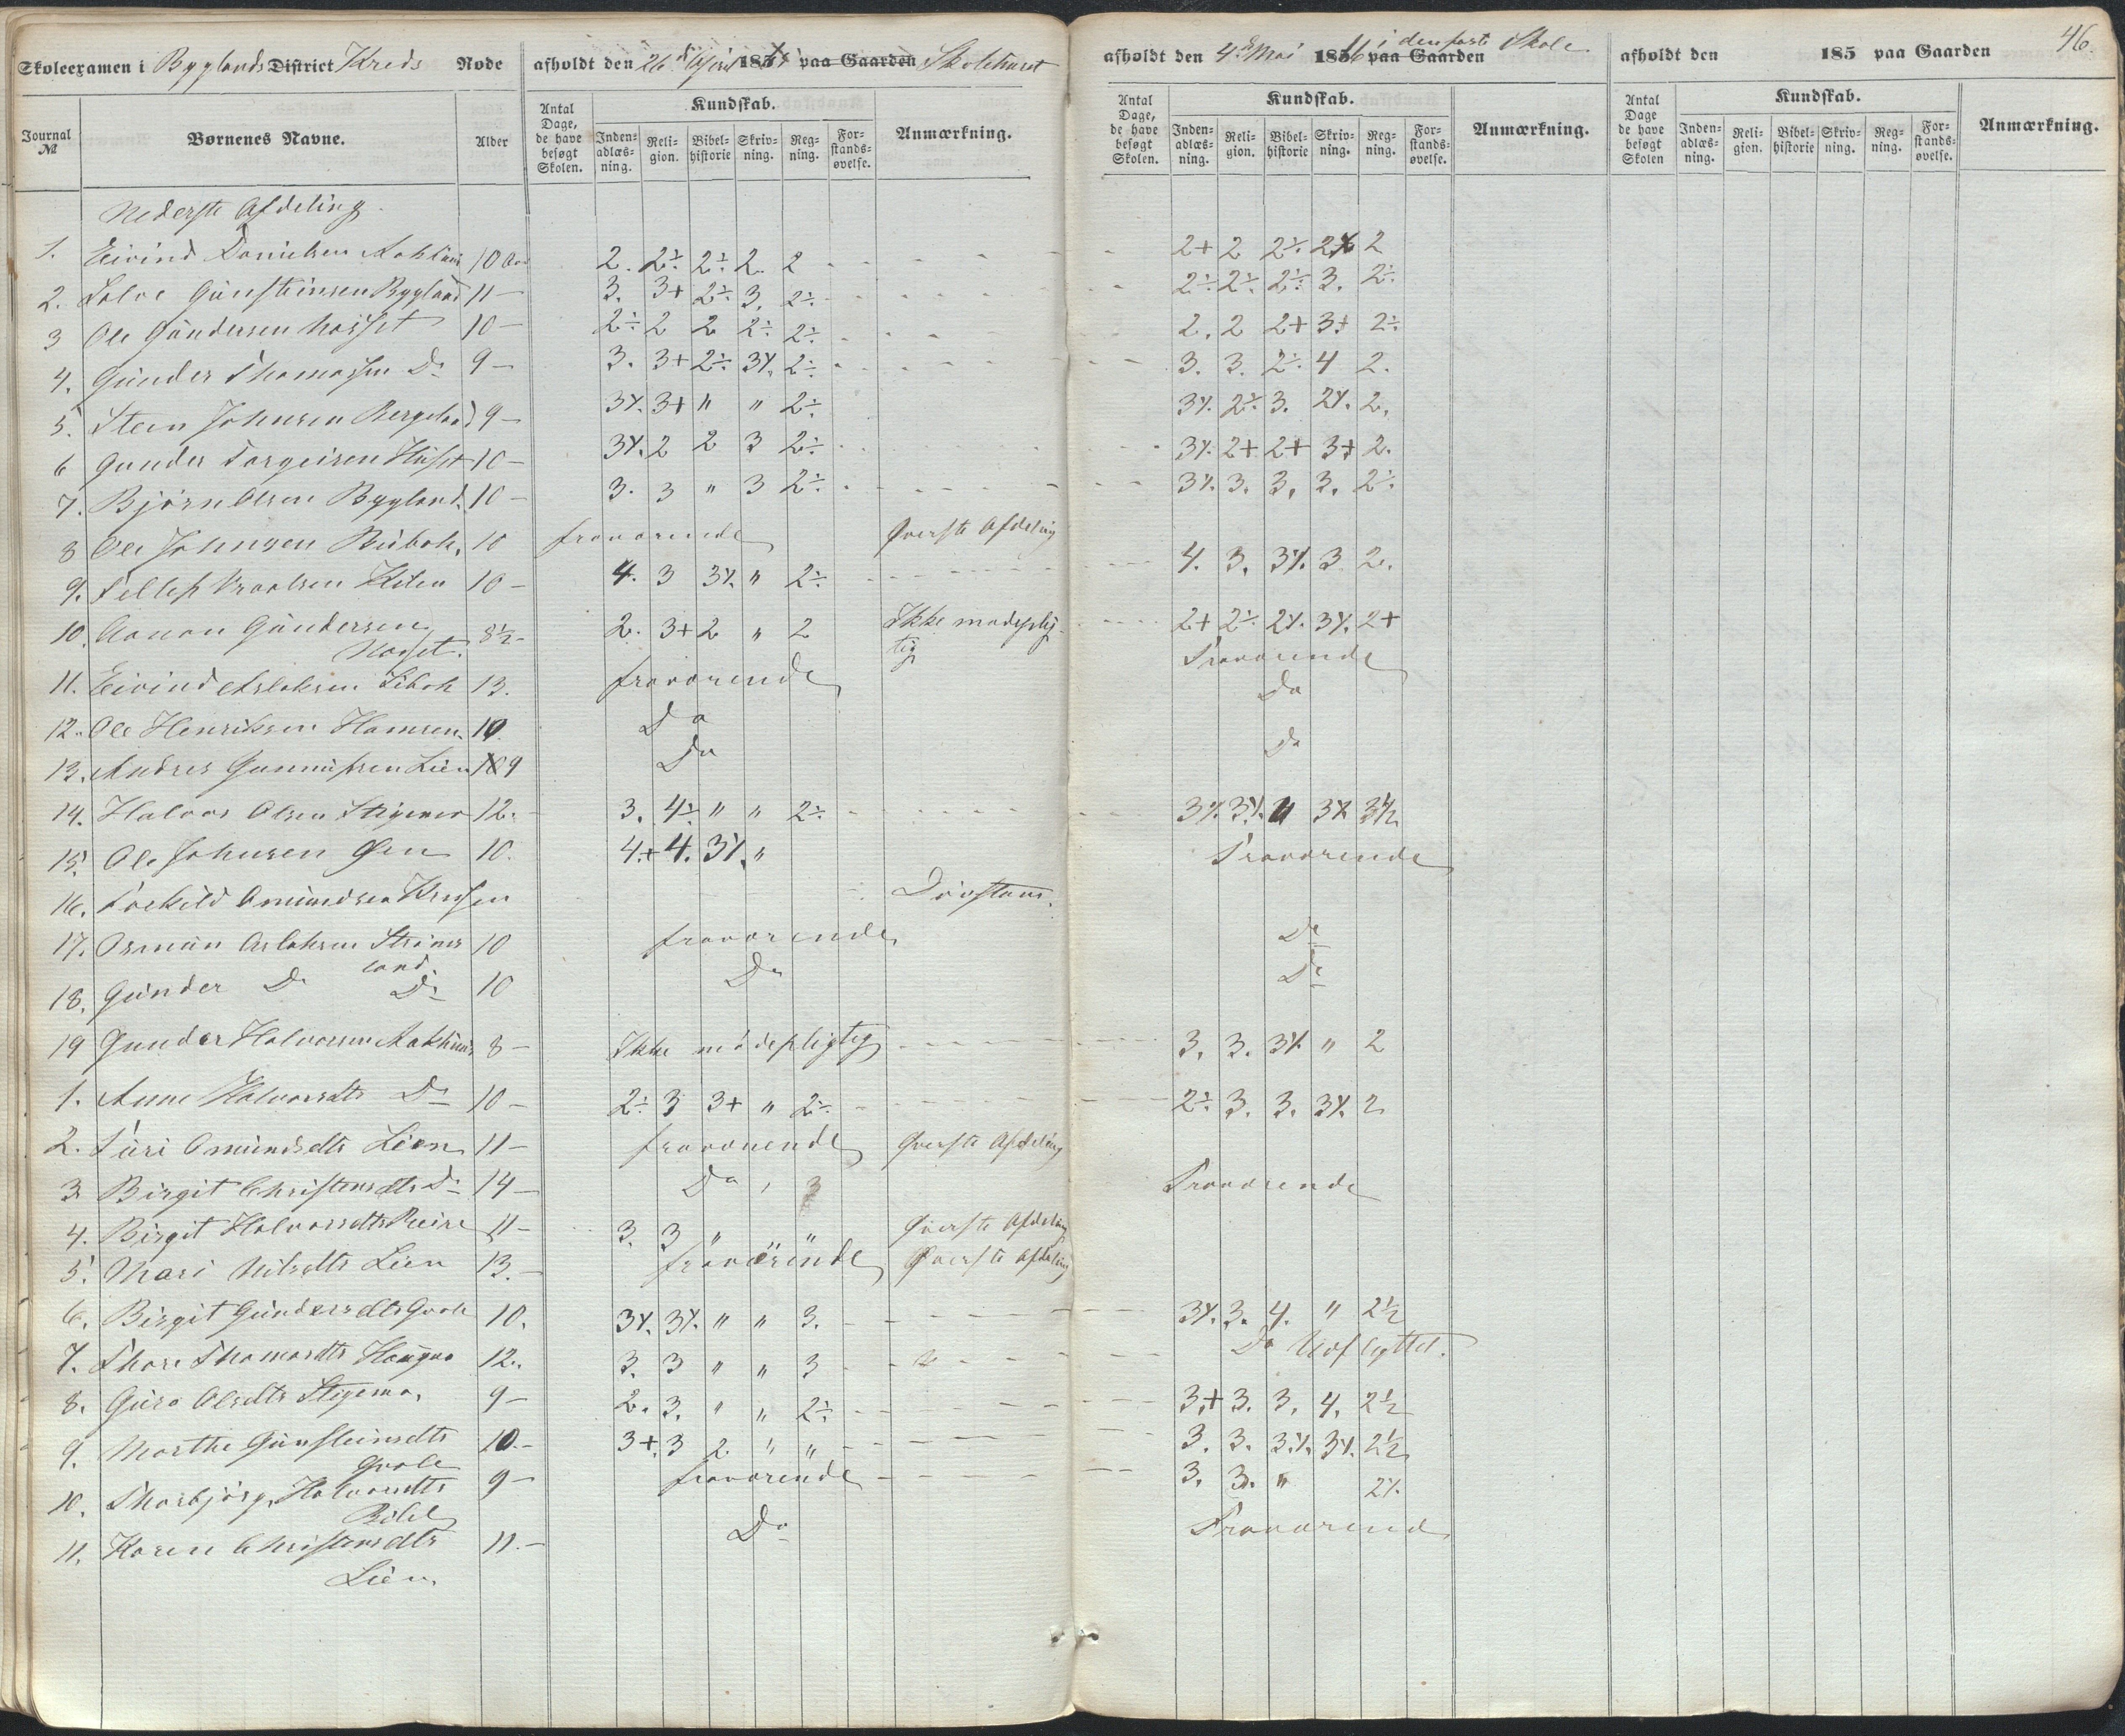 46.
Skoleexamen i Byglands District Kreds Rode
afholdt den 26 d April 185 paa Gaarden Skolehuset
afholdt den 4de Mai 1856 paa Gaarden i den faste Skole
afholdt den 185 paa Gaarden
Journal № Børnenes Navne. Alder
Antal Dage, de have besøgt Skolen. Kundskab. Inden-adlæs-ning. Reli-gion. Bibel-historie Skriv-ning. Reg-ning. For-stands-øvelse. Anmærkning.
Antal Dage, de have besøgt Skolen. Kundskab. Inden-adlæs-ning. Reli-gion. Bibel-historie Skriv-ning. Reg-ning. For-stands-øvelse. Anmærkning.
Antal Dage de have besøgt Skolen Kundskab. Inden-adlæs-ning. Reli-gion. Bibel-historie Skriv-ning. Reg-ning. For-stands-øvelse. Anmærkning.
Nederste Afdeling
1. Eivind Danielsen 10 Aar 2. 2÷ 2÷ 2. 2 2+ 2 2÷ 2 2
2. Salve Gunsteinsen Bygland 11 — 3. 3+ 2÷ 3. 2÷ 2÷ 2÷ 2÷ 3. 2÷
3 Ole Gundersen Nasset 10 — 2÷ 2 2 2÷ 2÷ 2. 2 2+ 3+ 2÷
4. Gunder Thomassen Do 9 — 3. 3+ 2÷ 3⁒ 2÷ 3. 3. 2÷ 4 2.
5. Stein Johnsen Bergeland 9 — 3⁒ 3+ " " 2÷ 3⁒ 2÷ 3. 2⁒ 2.
6 Gunder Torgeirsen 10 — 3⁒ 2 2 3 2÷ 3⁒ 2+ 2+ 3+ 2.
7. Bjørn Olsen Bygland. 10 — 3. 3 " 3 2÷ 3⁒ 3. 3. 3. 2÷
8 Ole Johnsen 10 fraværende Øverste Afdeling
9. Tellef 10 — 4. 3 3⁒ " 2÷ 4. 3. 3⁒ 3 2.
10. Aanon Gundersen 8½ - 2. 3+ 2 " 2 Ikke mødeplig- 2+ 2÷ 2⁒ 3⁒ 2+
Nasset. tig Fraværende
11. Eivind Aslaksen Libak 13. fraværende Do
12. Ole Henriksen 10 Do
13. Andres Gunnufsen Lien 9 Do Do
14. Halvor Olsen 12. 3. 4÷ " " 2÷ 3⁒ 3⁒ 4 3⁒ 3½
15. Ole Johnsen 10. 4+ 4. 3⁒ " Fraværende
16. Torkild Omundsen Døvstum.
17. Osmun Aslaksen Strøms 10 fraværende Do
land.
18. Gunder Do Do 10 Do Do
19 Gunder Halvorsen 8 — Ikke mødepligtig 3. 3. 3⁒ " 2
1. Anne Halvorsdtr Do 10 — 2÷ 3 3+ " 2÷ 2÷ 3. 3. 3⁒ 2
2. Turi Omundsdtr Lien 11 — fraværende Øverste Afdeling
3 Birgit Christensdtr Do 14 — Do Fraværende
4. Birgit Halvorsdtr 11 — 3. 3 " " " Øverste Afdeling
5. Mari Nilsdtr Lien 13. — fraværende Øverste Afdeling
6. Birgit Gundersdtr 10. 3⁒ 3⁒ " " 3. 3⁒ 3. 4. " 2½
7. Thore Thomasdtr 12. 3. 3 " " 3 Do Udflyttet.
8. Guro Olsdtr 9 — 2. 3. " " 2÷ 3+ 3. 3. 4. 2½
9. Marthe Gunsteinsdtr 10. - 3+ 3 2. " " 3. 3. 3⁒ 3⁒ 2½
10. Thorbjørg Halvorsdtr 9 — fraværende 3. 3. " 2⁒
11. Karen Christensdtr 11. - Do Fraværend
Lien.